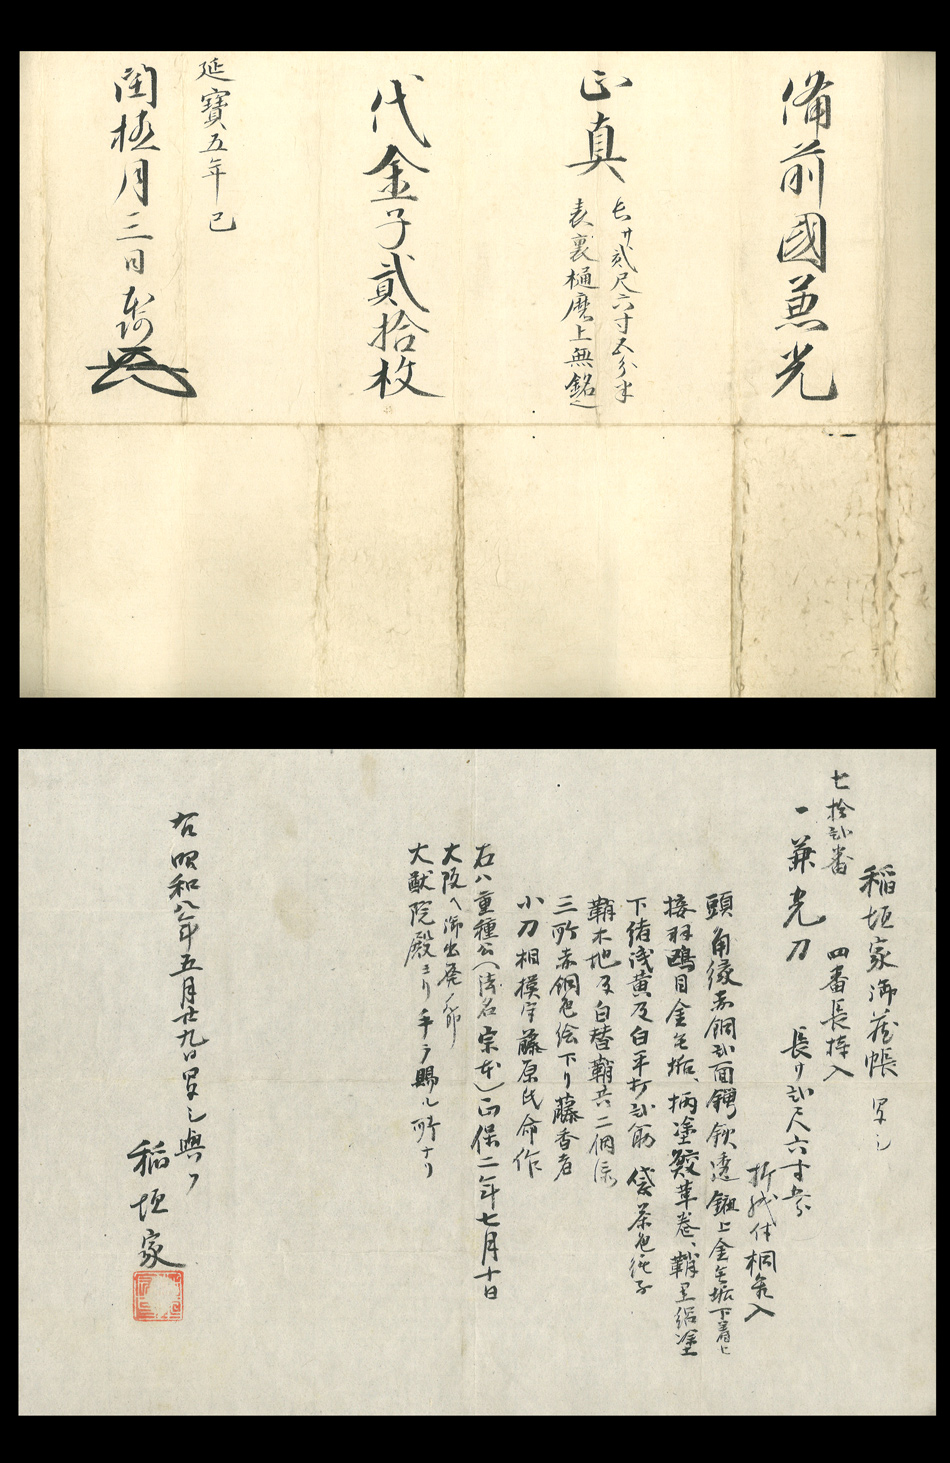 備前國兼光
正真
長サ貳尺六寸五分半
表裏樋磨上無銘之
代金子貳拾枚
延寶五年巳
閏極月三日
稲垣家御蔵帳 写之
七拾弐番 四番長持入
一 兼光刀 長サ弐尺六寸五分
折紙付桐箱入
頭角縁赤銅弐面鍔鉄透鎺上金無垢下着セ
接羽鵐目金無垢、柄塗鮫革巻、鞘黒絽塗
下緒浅黄及白平打弐筋 袋茶色純子
鞘木地及白替鞘共二個
三所赤銅色絵下り藤香者
小刀相模守藤原氏命作
右ハ重種公(法名宗本)正保二年七月十日
大阪ヘ御出発ノ節
大猷院殿ヨリ手ヲ賜ル所ナリ
右昭和八年五月廿九日写之與フ
稲垣家